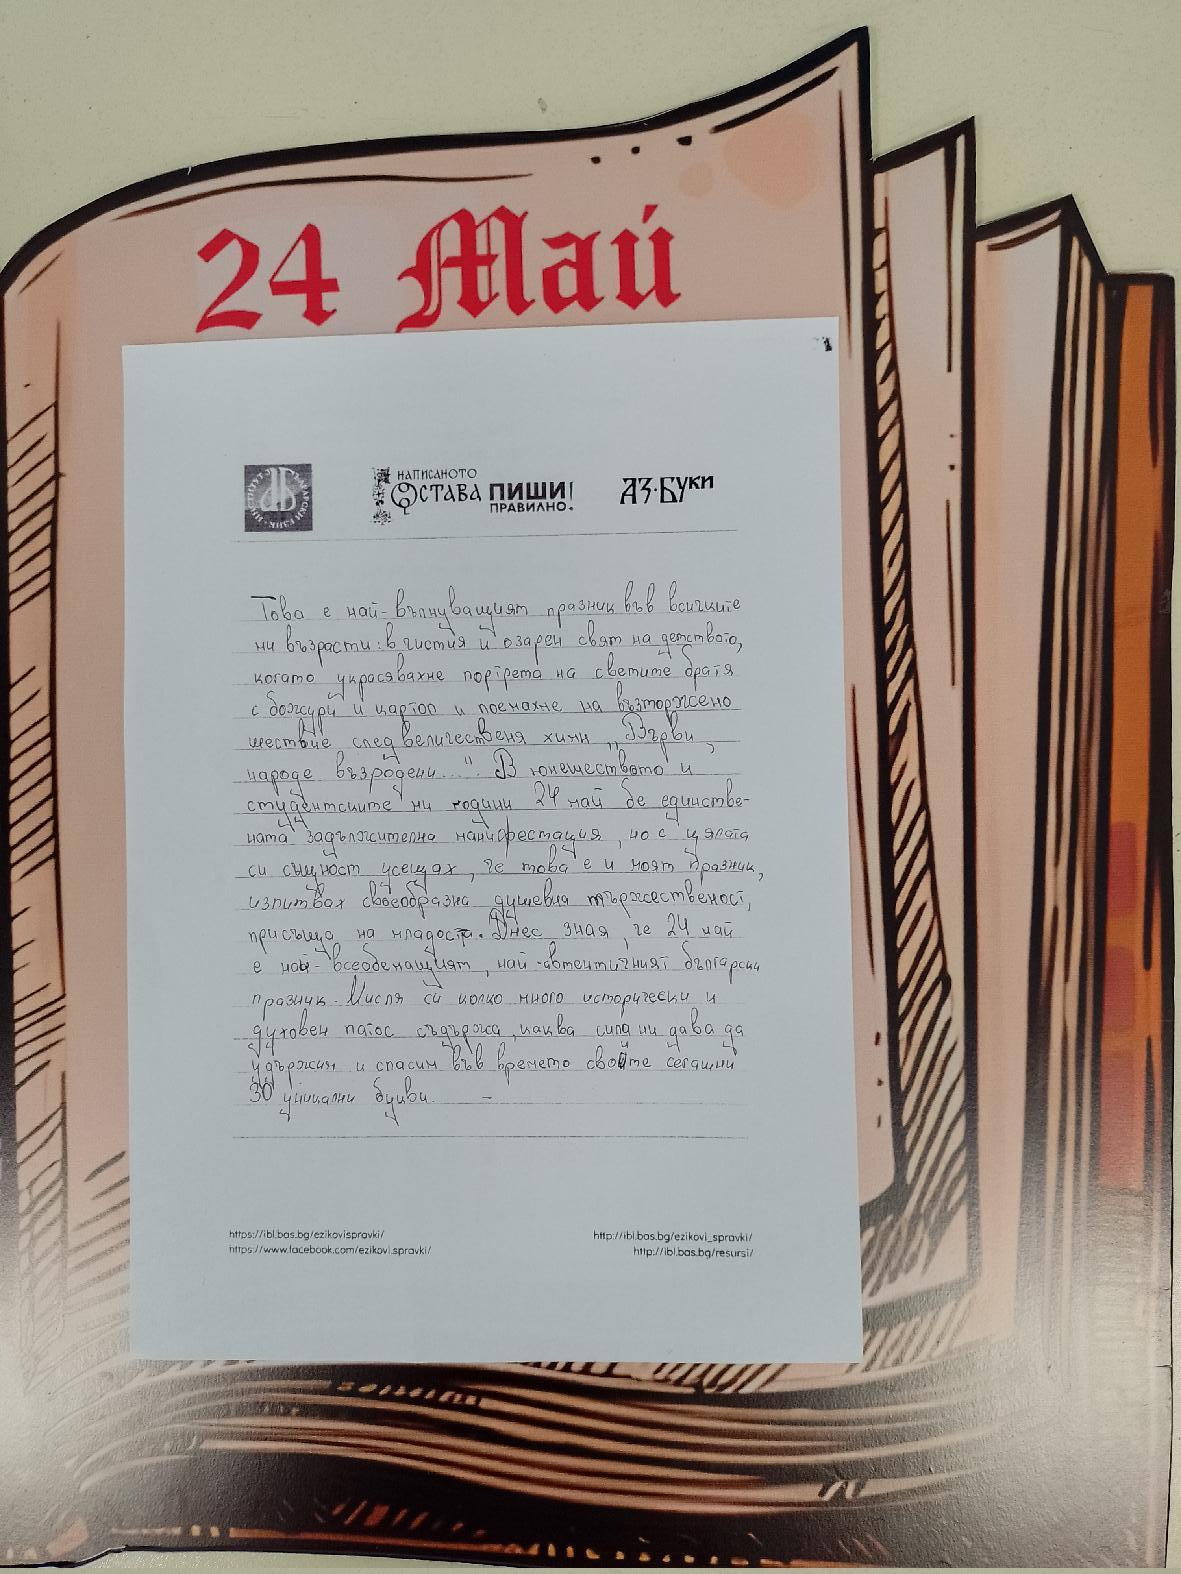 24 Май
НАПИСАНОТО
ОСТАВА ПИШИ!
ПРАВИЛНО.
АЗ·БУКИ
Това е най-вълнуващият празник във всичките
ни възрасти: в чистия и озарен свят на детството,
когато украсявахме портрета на светите братя
с божури и картоп и поемахме на възторжено
шествие след величествения химн „Върви,
народе възродени...". В юношеството и
студентските ни години 24 май бе единстве-
ната задължителна манифестация, но с цялата
си същност усещах, че това е и моят празник,
изпитвах своеобразна душевна тържественост,
присъща на младостта. Днес зная, че 24 май
е най-всеобемащият, най-автентичният български
празник. Мисля си колко много исторически и
духовен патос съдържа, каква сила ни дава да
удържим и спасим във времето своите сегашни
30 уникални букви.
https://ibl.bas.bg/ezikovispravki/
http://ibl.bas.bg/ezikovi_spravki/
https://www.facebook.com/ezikovi.spravki/
http://ibl.bas.bg/resursi/